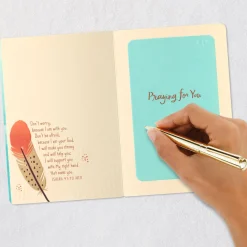 Don't worry,
because I am with you.
Don't be afraid,
because I am your God.
I will make you strong
and will help you.
I will support you
with My right hand
that saves you.
ISAIAH 41:10 NCV
Praying for You